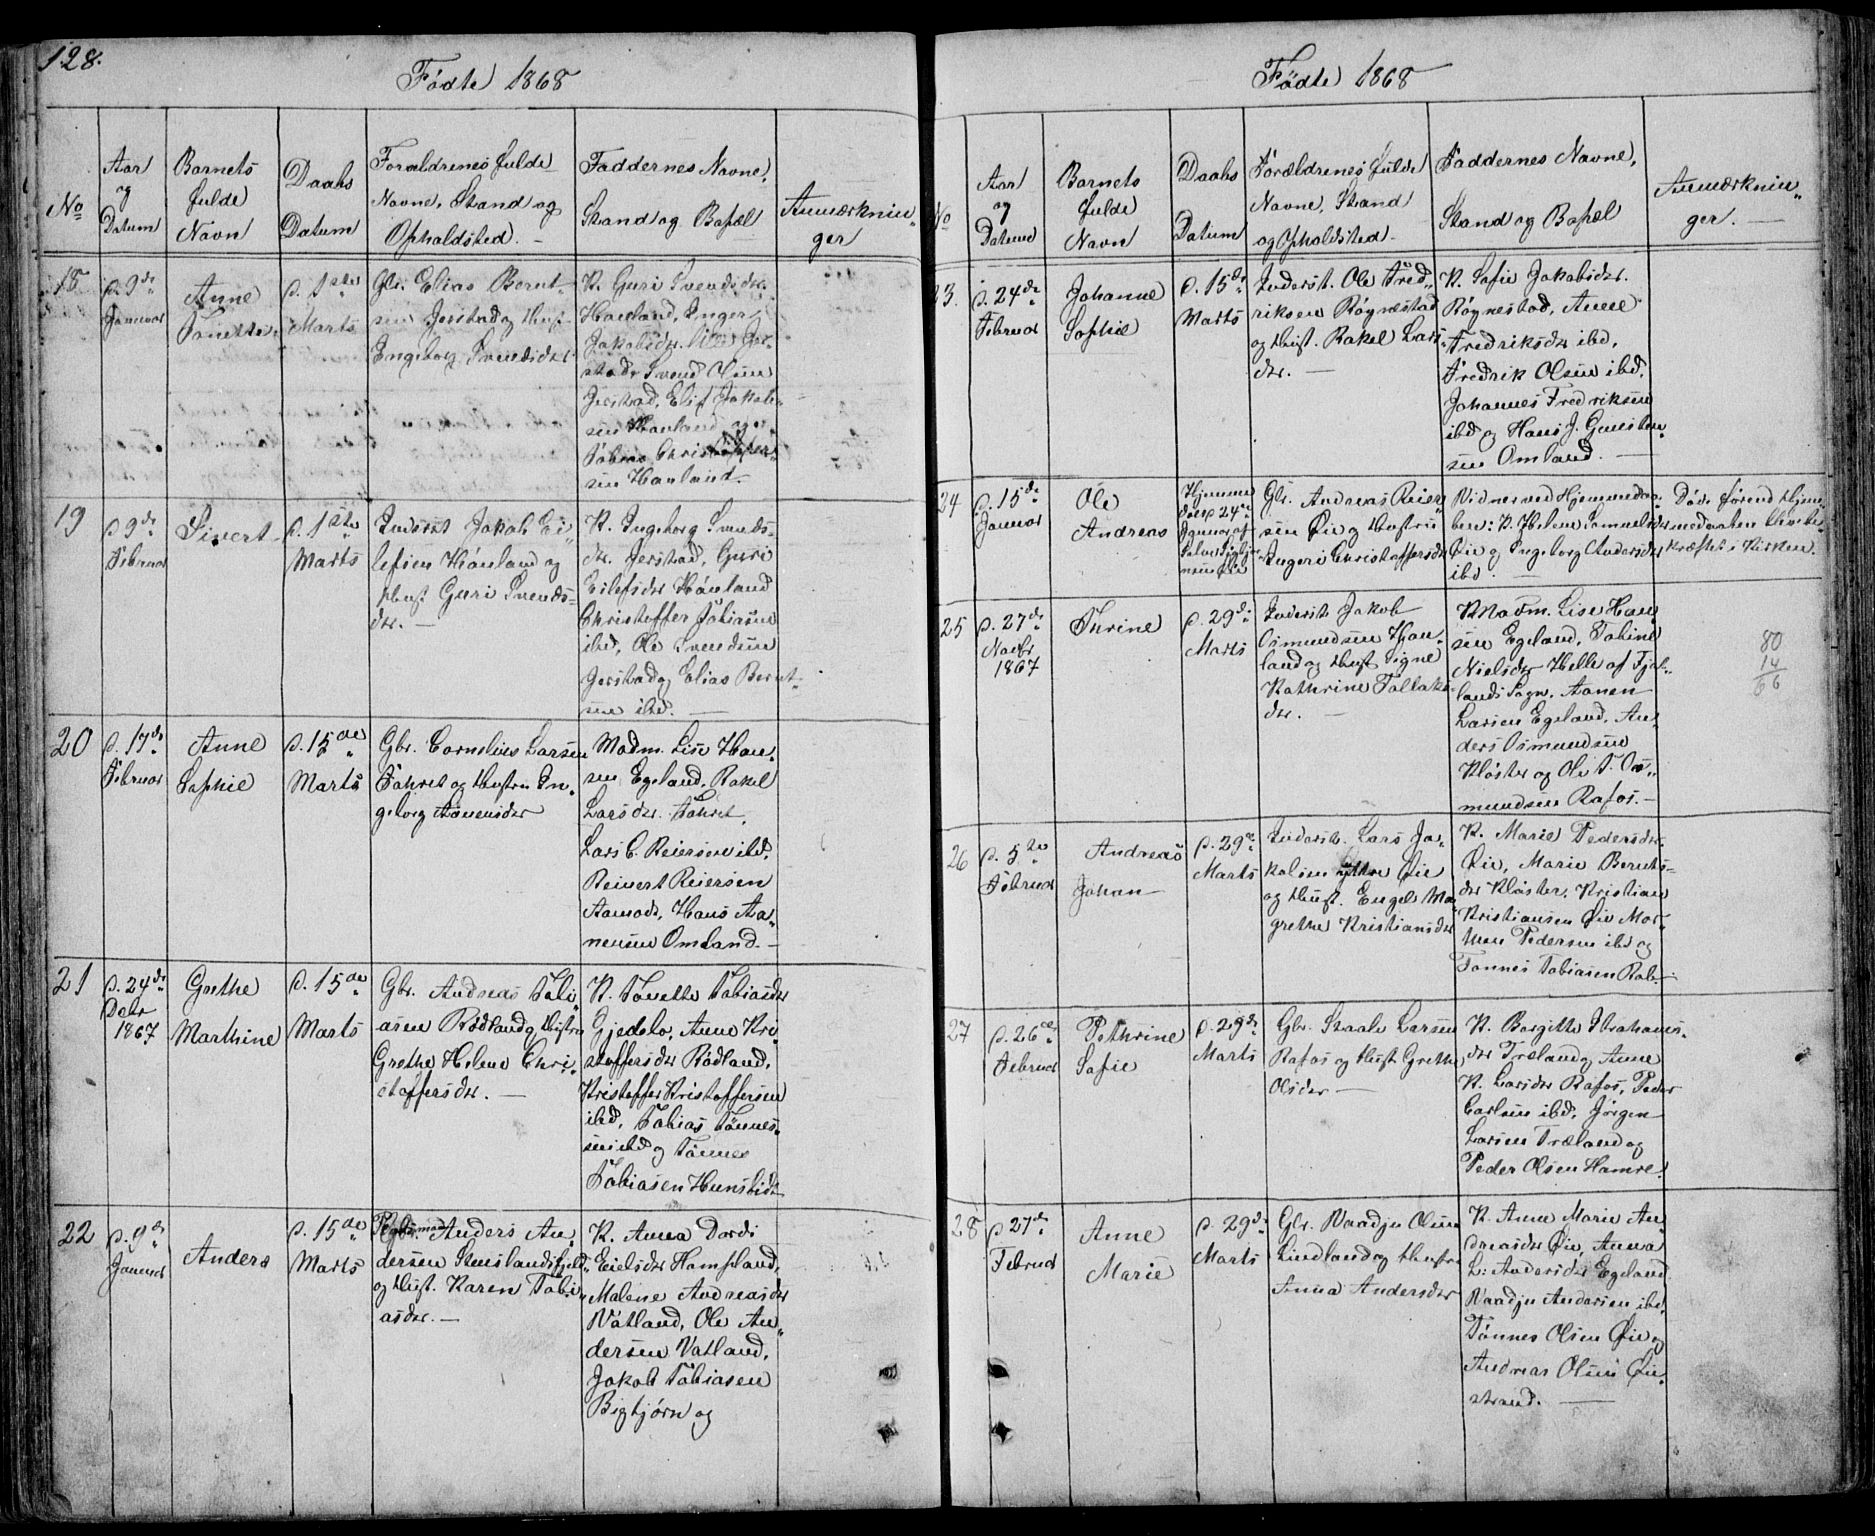 128.
Fødte 1868
No
Aar
og
Datum
Barnets
fulde
Navn
Daabs
Datum
Forældrenes fulde
Navne, Stand og
Opholdsted. –
Faddernes Navne,
Stand og Bopæl
Anmærknin„
ger
18
d. 9de
Januar
Anne
Tonette.
d. 1ste
Marts
Gbr. Elias Bernt„
sen Jerstad og Hust
Ingeborg Svendsdr
K. Guri Svendsdr.
Hanland, Inger
Jakobsdr. Jer„
stad, Svend Olsen
Jerstad, Elif Jakob„
sen Hanland og
Tobias Christoffer„
sen Hanland.
19
d. 9de
Februar
Sivert
d. 1ste
Marts
Inderst Jakob Ei„
lefsen Hånland og
Hust Guri Svends„
dr. –
K. Ingeborg Svends„
dr. Jerstad, Guri
Eilefsdr Hånland
Christoffer Tobiasen
ibd, Ole Svendsen
Jerstad og Elias Bernt„
sen ibd. –
20
d. 17de
Februar
Anne
Sophie
d. 15de
Marts
Gbr. Cornelius Larsen
Fahret og Hustru In„
geborg Aanensdr
Madm. Lise Han„
sen Egeland, Rakel
Larsdr. Fahret,
Lars C. Reiersen ibd,
Reinert Reiersen
Aamodt, Hans Aa„
nensen Omland. –
21
d. 24de
Debr
1867
Grethe
Marthine
d. 15de
Marts
Gbr. Andreas Tobi„
asen Rødland og Hustru
Grethe Helene Chri„
stoffersdr. –
K. Tonette Tobiasdr
Gjedebo, Anne Kri„
stoffersdr Rødland,
Kristoffer Kristoffersen
ibd, Tobias Tønnes„
sen ibd og Tønnes
Tobiasen Hunsbedt
22
d. 9de
Januar
Anders
d. 15de
Marts
Pladsmand Anders An„
dersen Stenslandsfjeld
og Hust. Karen Tobi„
asdr. –
K. Anna Dordi
Eielsdr Hompland,
Malene Andreasdr
Vatland, Ole An„
dersen Vatland,
Jakob Tobiasen
Birkjørn og
Fødte 1868
No
Aar
og
Datum
Barnets
fulde
Navn
Daabs
Datum
Forældrenes fulde
Navne, Stand
og Opholdsted –
Faddernes Navne,
Stand og Bopæl
Anmærknin„
ger. –
23.
d. 24de
Februar
Johanne
Sophie
d. 15de
Marts
Inderst. Ole Fred„
riksen Røynestad
og Hust. Rakel Lars„
dr. –
K. Sofie Jakobsdr.
Røynestad, Anne
Fredriksdr ibd,
Fredrik Olsen ibd,
Johannes Fredriksen
ibd og Hans J. Gunsten„
sen Omland. –
24
d. 15de
Januar
Ole
Andreas
Hjemme
døbt 24de
Januar af
Gbr. Andreas Reier„
sen Øie og Hustru
Ingeri Christoffersdr
Vidner ved Hjemmedaa„
ben: K. Helene Samuelsdr
Øie og Ingeborg Andersdr
ibd. –
Døde førend Hjem„
medaaben blev be„
kræftet i Kirken.
25
d. 27de
Novbr
1867
Thrine
d. 29de
Marts
Inderst. Jakob
Osmundsen Han„
land og Hust Signe
Kathrine Tollaks„
dr. –
K. Madm. Lise Han„
sen Egeland, Tobine
Nielsdr Helle af Fjot„
lands Sogn, Aanen
Larsen Egeland, An„
ders Osmundsen
Kloster og Ole T. Os„
mundsen Rafos. –
80
14
66
26
d. 5te
Februar
Andreas
Johan
d. 29de
Marts
Inderst. Lars Ja„
kobsen ytre Øie
og Hust. Engel Ma„
grethe Kristiansdr
K. Marie Pedersdr
Øie, Marie Bernts„
dr Kloster, Kristian
Kristiansen Øie Mor„
then Pedersen ibd og
Tønnes Tobiasen Rob„
27
d. 26de
Februar
Pethrine
Sofie
d. 29de
Marts
Gbr. Staale Larsen
Rafos og Hust Grethe
Olsdr –
K. Bergitte Abrahams„
dr Træland og Anne
K. Larsdr Rafos, Peder
Carlsen ibd, Jørgen
Larsen Træland og
Peder Olsen Hamre.
28
d. 27de
Februar
Anne
Marie
d. 29de
Marts
Gbr. Vaadju Olsen
Lindland og Hustru
Anna Andersdr
K. Anne Marie An„
dreasdr Øie, Anna
L: Andersdr Egeland
Vaadju Andersen ibd.
Tønnes Olsen Øie og
Andreas Olsen Øie„
strand. –